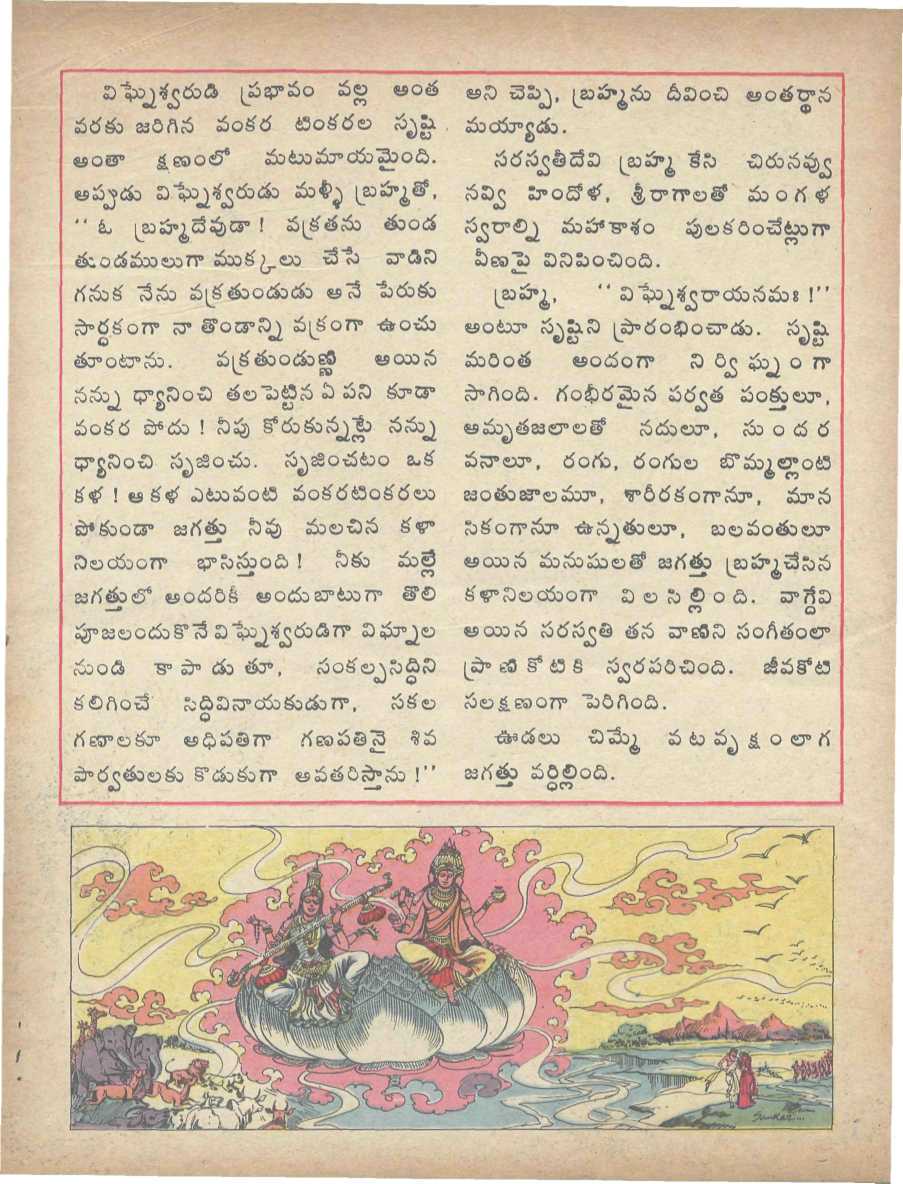 విఘ్నేశ్వరుడి ప్రభావం వల్ల అంత
వరకు జరిగిన వంకర టింకరల సృష్టి
అంతా క్షణంలో మటుమాయమైంది.
అప్పుడు విఘ్నేశ్వరుడు మళ్ళీ బ్రహ్మతో,
‘‘ ఓ బ్రహ్మదేవుడా ! వక్రతను తుండ
తుండములుగా ముక్కలు చేసే వాడిని
గనుక నేను వక్రతుండుడు అనే పేరుకు
సార్థకంగా నా తొండాన్ని వక్రంగా ఉంచు
తూంటాను. వక్రతుండుణ్ణి అయిన
నన్ను ధ్యానించి తలపెట్టిన ఏ పని కూడా
వంకర పోదు ! నీవు కోరుకున్నట్లే నన్ను
ధ్యానించి సృజించు. సృజించటం ఒక
కళ ! ఆ కళ ఎటువంటి వంకరటింకరలు
పోకుండా జగత్తు నీవు మలచిన కళా
నిలయంగా భాసిస్తుంది ! నీకు మల్లే
జగత్తులో అందరికీ అందుబాటుగా తొలి
పూజలందుకొనే విఘ్నేశ్వరుడిగా విఘ్నాల
నుండి కాపాడుతూ, సంకల్పసిద్ధిని
కలిగించే సిద్ధివినాయకుడుగా, సకల
గణాలకూ అధిపతిగా గణపతినై శివ
పార్వతులకు కొడుకుగా అవతరిస్తాను !’’
అని చెప్పి, బ్రహ్మను దీవించి అంతర్థాన
మయ్యాడు.
సరస్వతీదేవి బ్రహ్మ కేసి చిరునవ్వు
నవ్వి హిందోళ, శ్రీరాగాలతో మంగళ
స్వరాల్ని మహాకాశం పులకరించేట్లుగా
వీణపై వినిపించింది.
బ్రహ్మ, ‘‘ విఘ్నేశ్వరాయనమః !’’
అంటూ సృష్టిని ప్రారంభించాడు. సృష్టి
మరింత అందంగా నిర్విఘ్నంగా
సాగింది. గంభీరమైన పర్వత పంక్తులూ,
అమృతజలాలతో నదులూ, సుందర
వనాలూ, రంగు, రంగుల బొమ్మల్లాంటి
జంతుజాలమూ, శారీరకంగానూ, మాన
సికంగానూ ఉన్నతులూ, బలవంతులూ
అయిన మనుషులతో జగత్తు బ్రహ్మచేసిన
కళానిలయంగా విలసిల్లింది. వాగ్దేవి
అయిన సరస్వతి తన వాణిని సంగీతంలా
ప్రాణికోటికి స్వరపరిచింది. జీవకోటి
సలక్షణంగా పెరిగింది.
ఊడలు చిమ్మే వటవృక్షంలాగ
జగత్తు వర్ధిల్లింది.
Sankar...